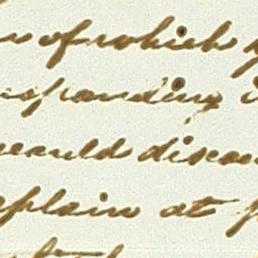 of which
sponding
would discon
explain at